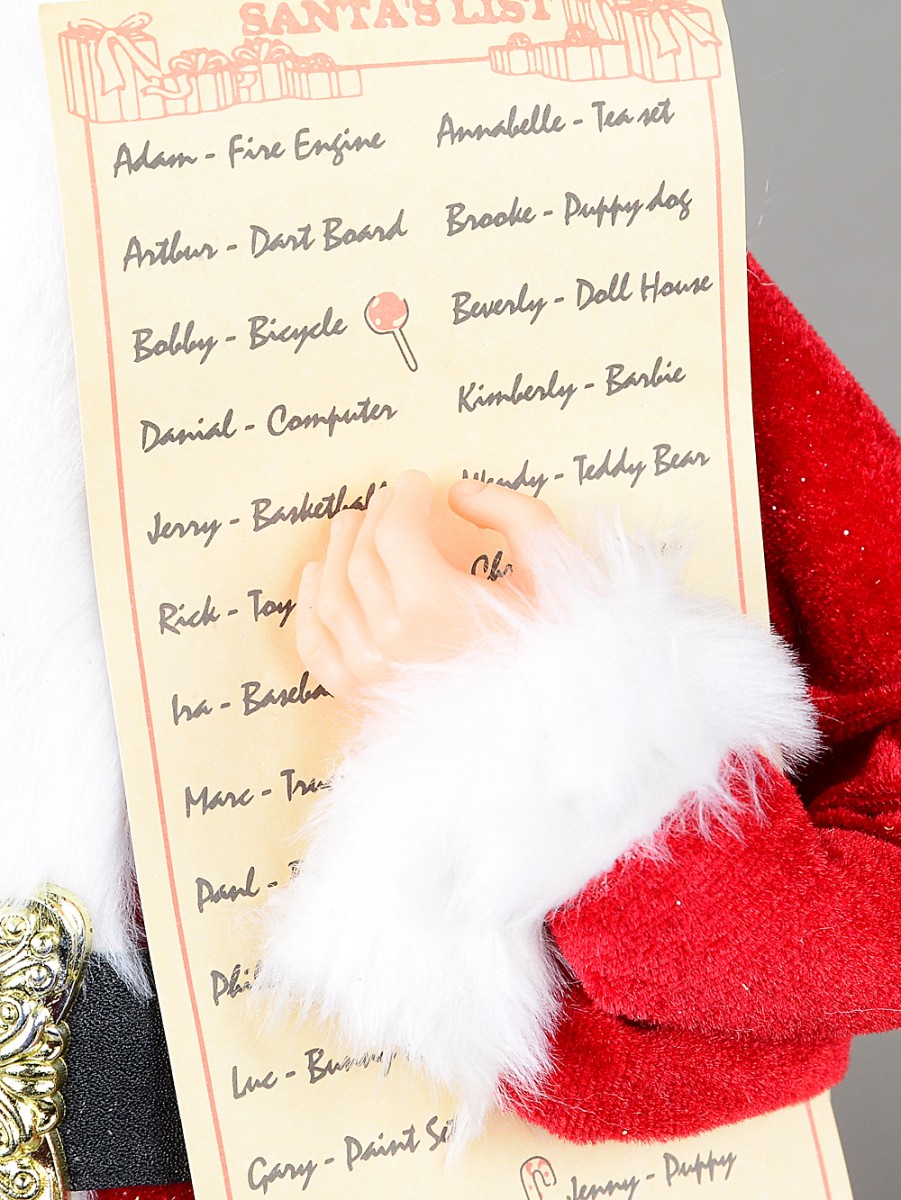 SANTA'S LIST
Adam - Fire Engine
Arthur - Dart Board
Bobby - Bicycle
Danial - Computer
Jerry - Basketball
Rick - Toy
Ira -
Marc -
Paul -
Luc -
Gary - Paint Set
Annabelle - Tea set
Brooke - Puppy dog
Beverly - Doll House
Kimberly - Barbie
Wendy - Teddy Bear
Jenny - Puppy